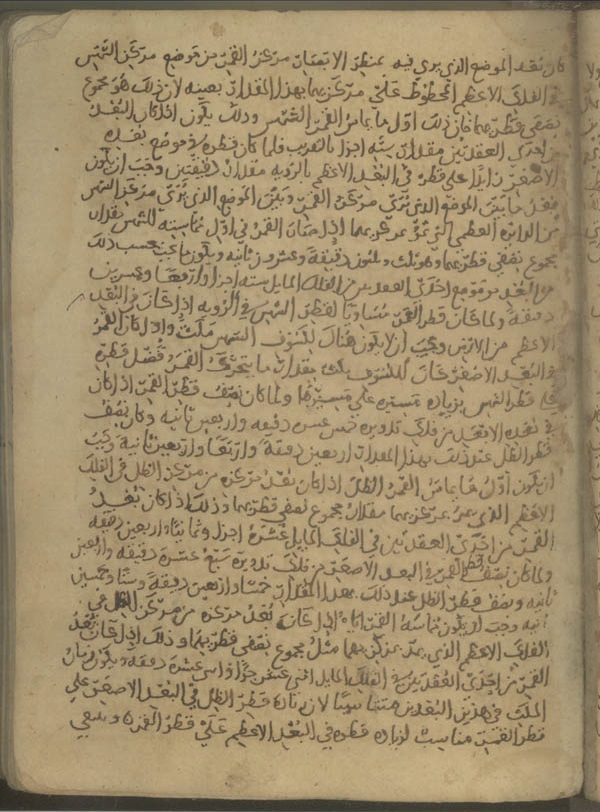 كان بعد الموضع الذي يرى فيه بمنظر الابصار مركز القمر من موضع مركز الشمس
في الفلك الاعظم المخطوط على مركزيهما بهذا المقدار بعينه لان ذلك هو مجموع
نصفي قطريهما فان ذلك اول ما يماس القمر الشمس وذلك يكون اذا كان البعد
من احدى العقدتين مقدار سته اجزا بالتقريب فلما كان قطره في موضع بعده
الاصغر زايدا على قطره في البعد الاعظم بالرويه مقدار دقيقتين وجب ان يكون
بعد ما بين الموضع الذي يرى مركز القمر وبين الموضع الذي يرى مركز الشمس
من الدايره العظمى التي تمر بمركزيهما اذا كان القمر في اول مماسته للشمس بمقدار
مجموع نصفي قطريهما وهو ثلث وثلثون دقيقة وعشرون ثانيه ويكون ما يجب بحسب ذلك
من البعد من موضع احدى العقدتين من الفلك المايل سته اجزا واربعا وعشرين
دقيقة ولما كان قطر القمر مساويا لقطر الشمس في الرويه اذا كان في البعد
الاعظم من الارض وجب ان لا يكون هناك لكسوف الشمس مكث واذا كان القمر
في البعد الاصغر كان للكسوف مكث بمقدار ما يتحرك القمر فضل قطره
على قطر الشمس بزياده مسيره على مسيرها ولما كان نصف قطر القمر اذا كان
في بعده الابعد من فلك تدويره خمس عشره دقيقه واربعين ثانيه وكان نصف
قطر الظل عند ذلك بهذا المقدار اربعين دقيقة واربعا واربعين ثانية وجب
ان يكون اول ما يماس القمر الظل اذا كان بعد مركزه من مركز الظل في الفلك
الاعظم الذي يمر بمركزيهما مقدار مجموع نصفي قطريهما وذلك اذا كان بعد
القمر من احدى العقدتين في الفلك المايل عشرة اجزا وثمانيا واربعين دقيقه
ولما كان نصف قطر القمر في البعد الاصغر من فلك تدويره سبع عشرة دقيقه واربعين
ثانيه ونصف قطر الظل عند ذلك بهذا المقدار خمسا واربعين دقيقة وستا وخمسين
ثانيه وجب ان يكون مماسة القمر اياه اذا كان بعد مركزه من مركز الظل في
الفلك الاعظم الذي يمر بمركزيهما مثل مجموع نصفي قطريهما وذلك اذا كان بعد
القمر من احدى العقدتين في الفلك المايل اثني عشر جزا واثني عشرة دقيقه ويكون زمان
المكث في هذين البعدين متناسبا لان زيادة قطر الظل في البعد الاصغر على
قطر القمر مناسبة لزياده قطره في البعد الاعظم على قطر القمر